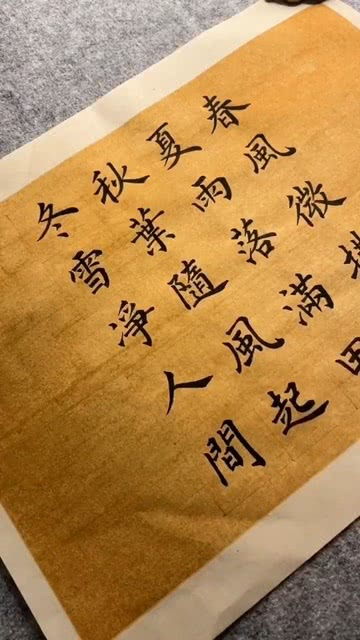 春風微
夏雨落滿田
秋葉隨風起
冬雪淨人間